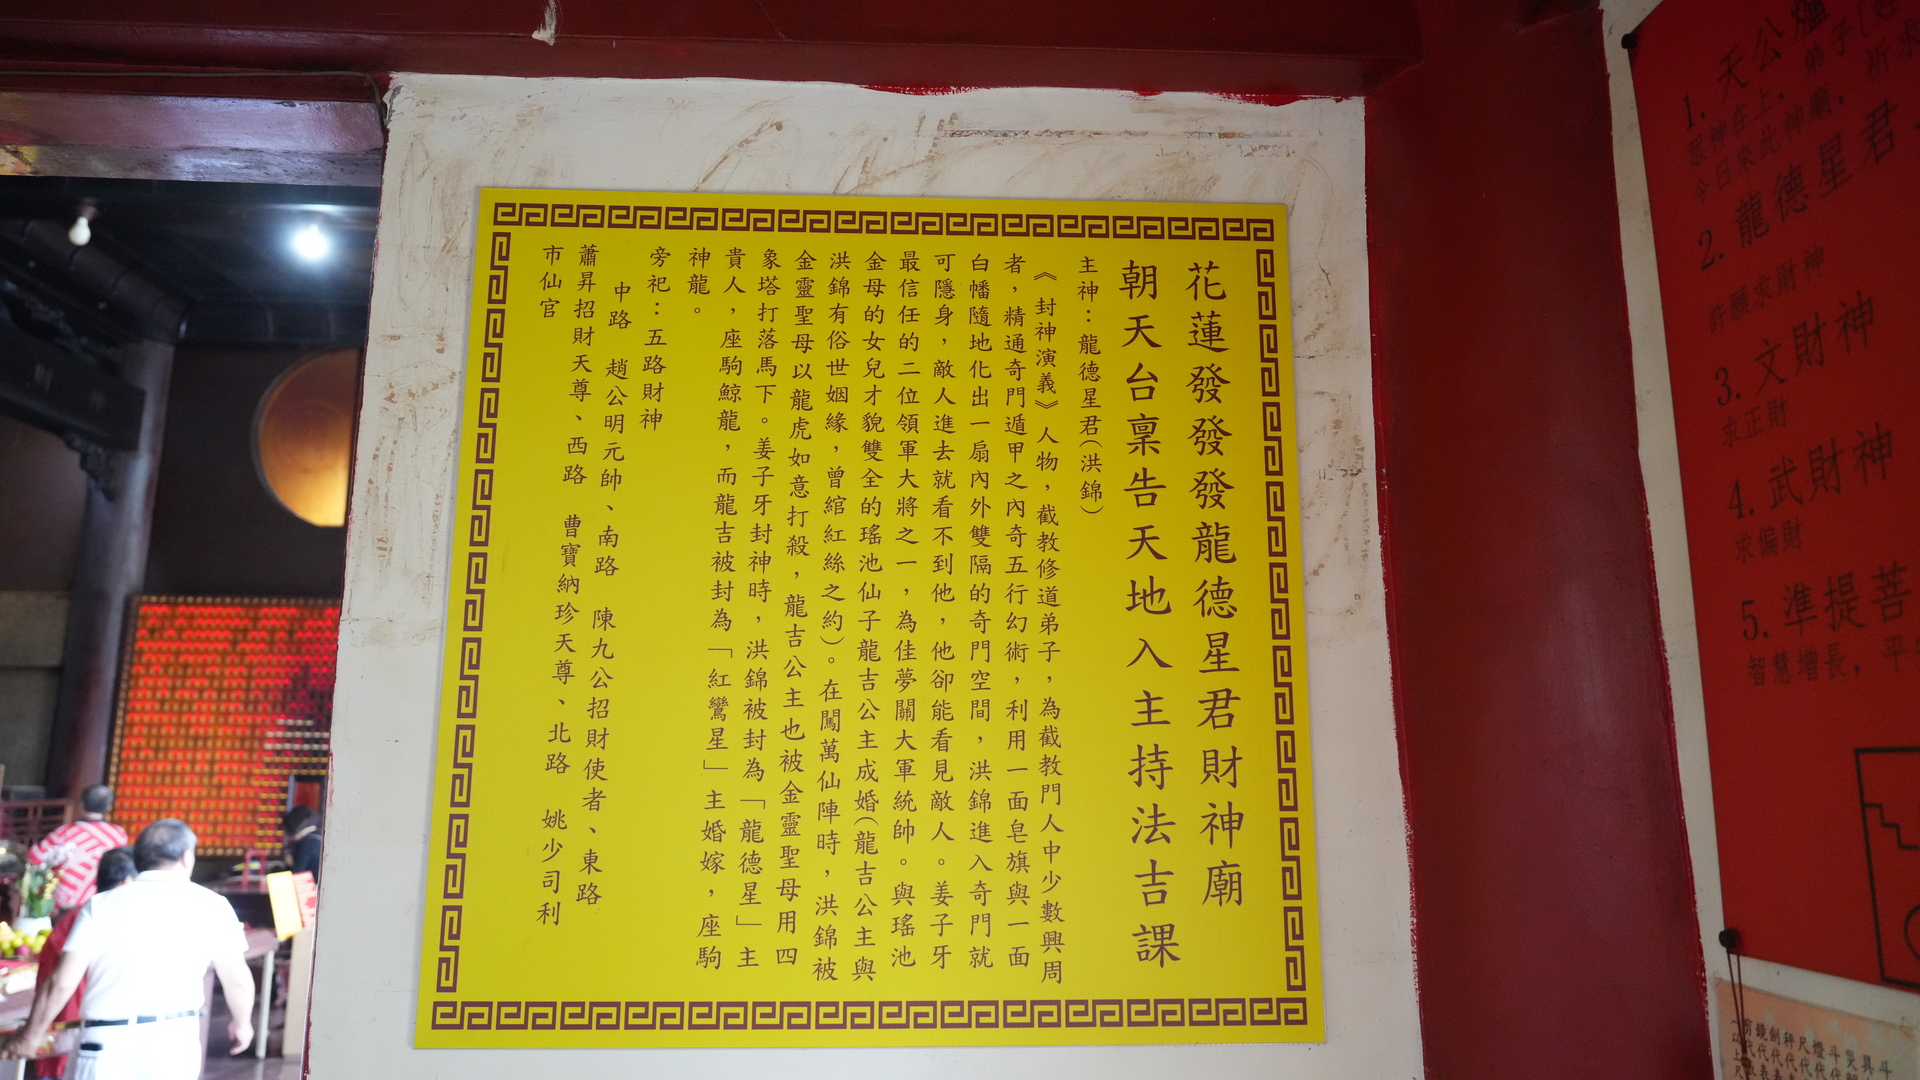 花蓮發發發龍德星君財神廟
朝天台稟告天地入主持法吉課
主神：龍德星君（洪錦）
《封神演義》人物，截教修道弟子，為截教門人中少數興周
者，精通奇門遁甲之內奇五行幻術，利用一面皂旗與一面
白幡隨地化出一扇內外雙隔的奇門空間，洪錦進入奇門就
可隱身，敵人進去就看不到他，他卻能看見敵人。姜子牙
最信任的二位領軍大將之一，為佳夢關大軍統帥。與瑤池
金母的女兒才貌雙全的瑤池仙子龍吉公主成婚（龍吉公主與
洪錦有俗世姻緣，曾綰紅絲之約）。在闖萬仙陣時，洪錦被
金靈聖母以龍虎如意打殺，龍吉公主也被金靈聖母用四
象塔打落馬下。姜子牙封神時，洪錦被封為「龍德星」主
貴人，座駒鯨龍，而龍吉被封為「紅鸞星」主婚嫁，座駒
神龍。
旁祀：五路財神
中路　趙公明元帥、南路　陳九公招財使者、東路
蕭昇招財天尊、西路　曹寶納珍天尊、北路　姚少司利
市仙官
1. 天公爐
眾神在上，弟子
今日來此神廟，祈求
2. 龍德星君
許願求財神
3. 文財神
求正財
4. 武財神
求偏財
5. 準提菩
智慧增長，平